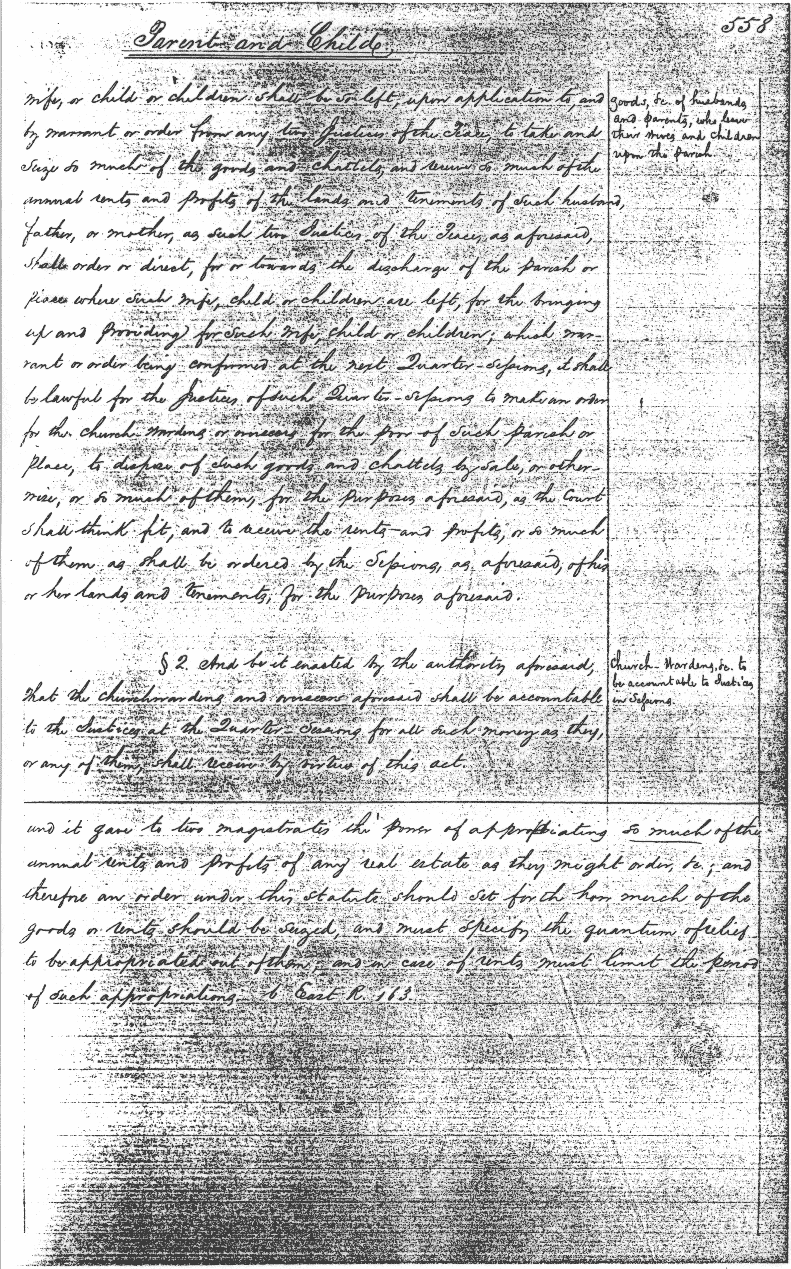 558
Parent and Child.
wife, or child or children shall be so left, upon application to, and
by warrant or order from any two Justices of the Peace, to take and
seize so much of the goods and chattels, and receive so much of the
annual rents and profits of the lands and tenements of such husband,
father, or mother, as such two Justices of the Peace, as aforesaid,
shall order or direct, for or towards the discharge of the parish or
place where such wife, child or children are left, for the bringing
up and providing for such wife, child or children; which war-
rant or order being confirmed at the next Quarter-Sessions, it shall
be lawful for the Justices of such Quarter-Sessions to make an order
for the church wardens or overseers for the poor of such parish or
place, to dispose of such goods and chattels by sale, or other-
wise, or so much of them, for the purposes aforesaid, as the Court
shall think fit, and to receive the rents and profits, or so much
of them as shall be ordered by the Sessions, as aforesaid, of his
or her lands and tenements, for the purposes aforesaid.
goods, &c. of husbands
and parents, who leave
their wives and children
upon the parish.
§ 2. And be it enacted by the authority aforesaid,
that the churchwardens and overseers aforesaid shall be accountable
to the Justices at the Quarter-Sessions for all such money as they,
or any of them, shall receive by virtue of this act.
Church-Wardens, &c. to
be accountable to Justices
in Sessions.
and it gave to two magistrates the power of appropriating so much of the
annual rents and profits of any real estate as they might order, &c.; and
therefore an order under this statute should set forth how much of the
goods or rents should be seized, and must specify the quantum of relief
to be appropriated out of them; and in case of rents must limit the period
of such appropriations. 6 East R. 163.